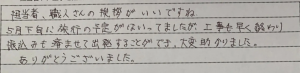 担当者、職人さんの挨拶がいいですね
5月下旬に旅行の予定がはいってましたが、工事も早く終わり
振込みも済ませて出発することができ、大変助かりました。
ありがとうございました。